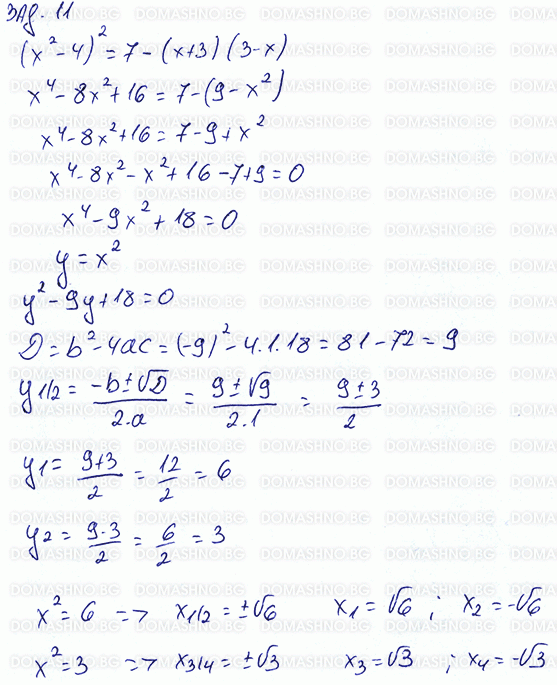 Зад. 11
(x² - 4)² = 7 - (x+3)(3-x)
x⁴ - 8x² + 16 = 7 - (9 - x²)
x⁴ - 8x² + 16 = 7 - 9 + x²
x⁴ - 8x² - x² + 16 - 7 + 9 = 0
x⁴ - 9x² + 18 = 0
y = x²
y² - 9y + 18 = 0
D = b² - 4ac = (-9)² - 4.1.18 = 81 - 72 = 9
y1/2 = (-b ± √D)/(2.a) = (9 ± √9)/(2.1) = (9 ± 3)/2
y1 = (9+3)/2 = 12/2 = 6
y2 = (9-3)/2 = 6/2 = 3
x² = 6 => x1/2 = ±√6 x1 = √6 ; x2 = -√6
x² = 3 => x3/4 = ±√3 x3 = √3 ; x4 = -√3
DOMASHNO.BG